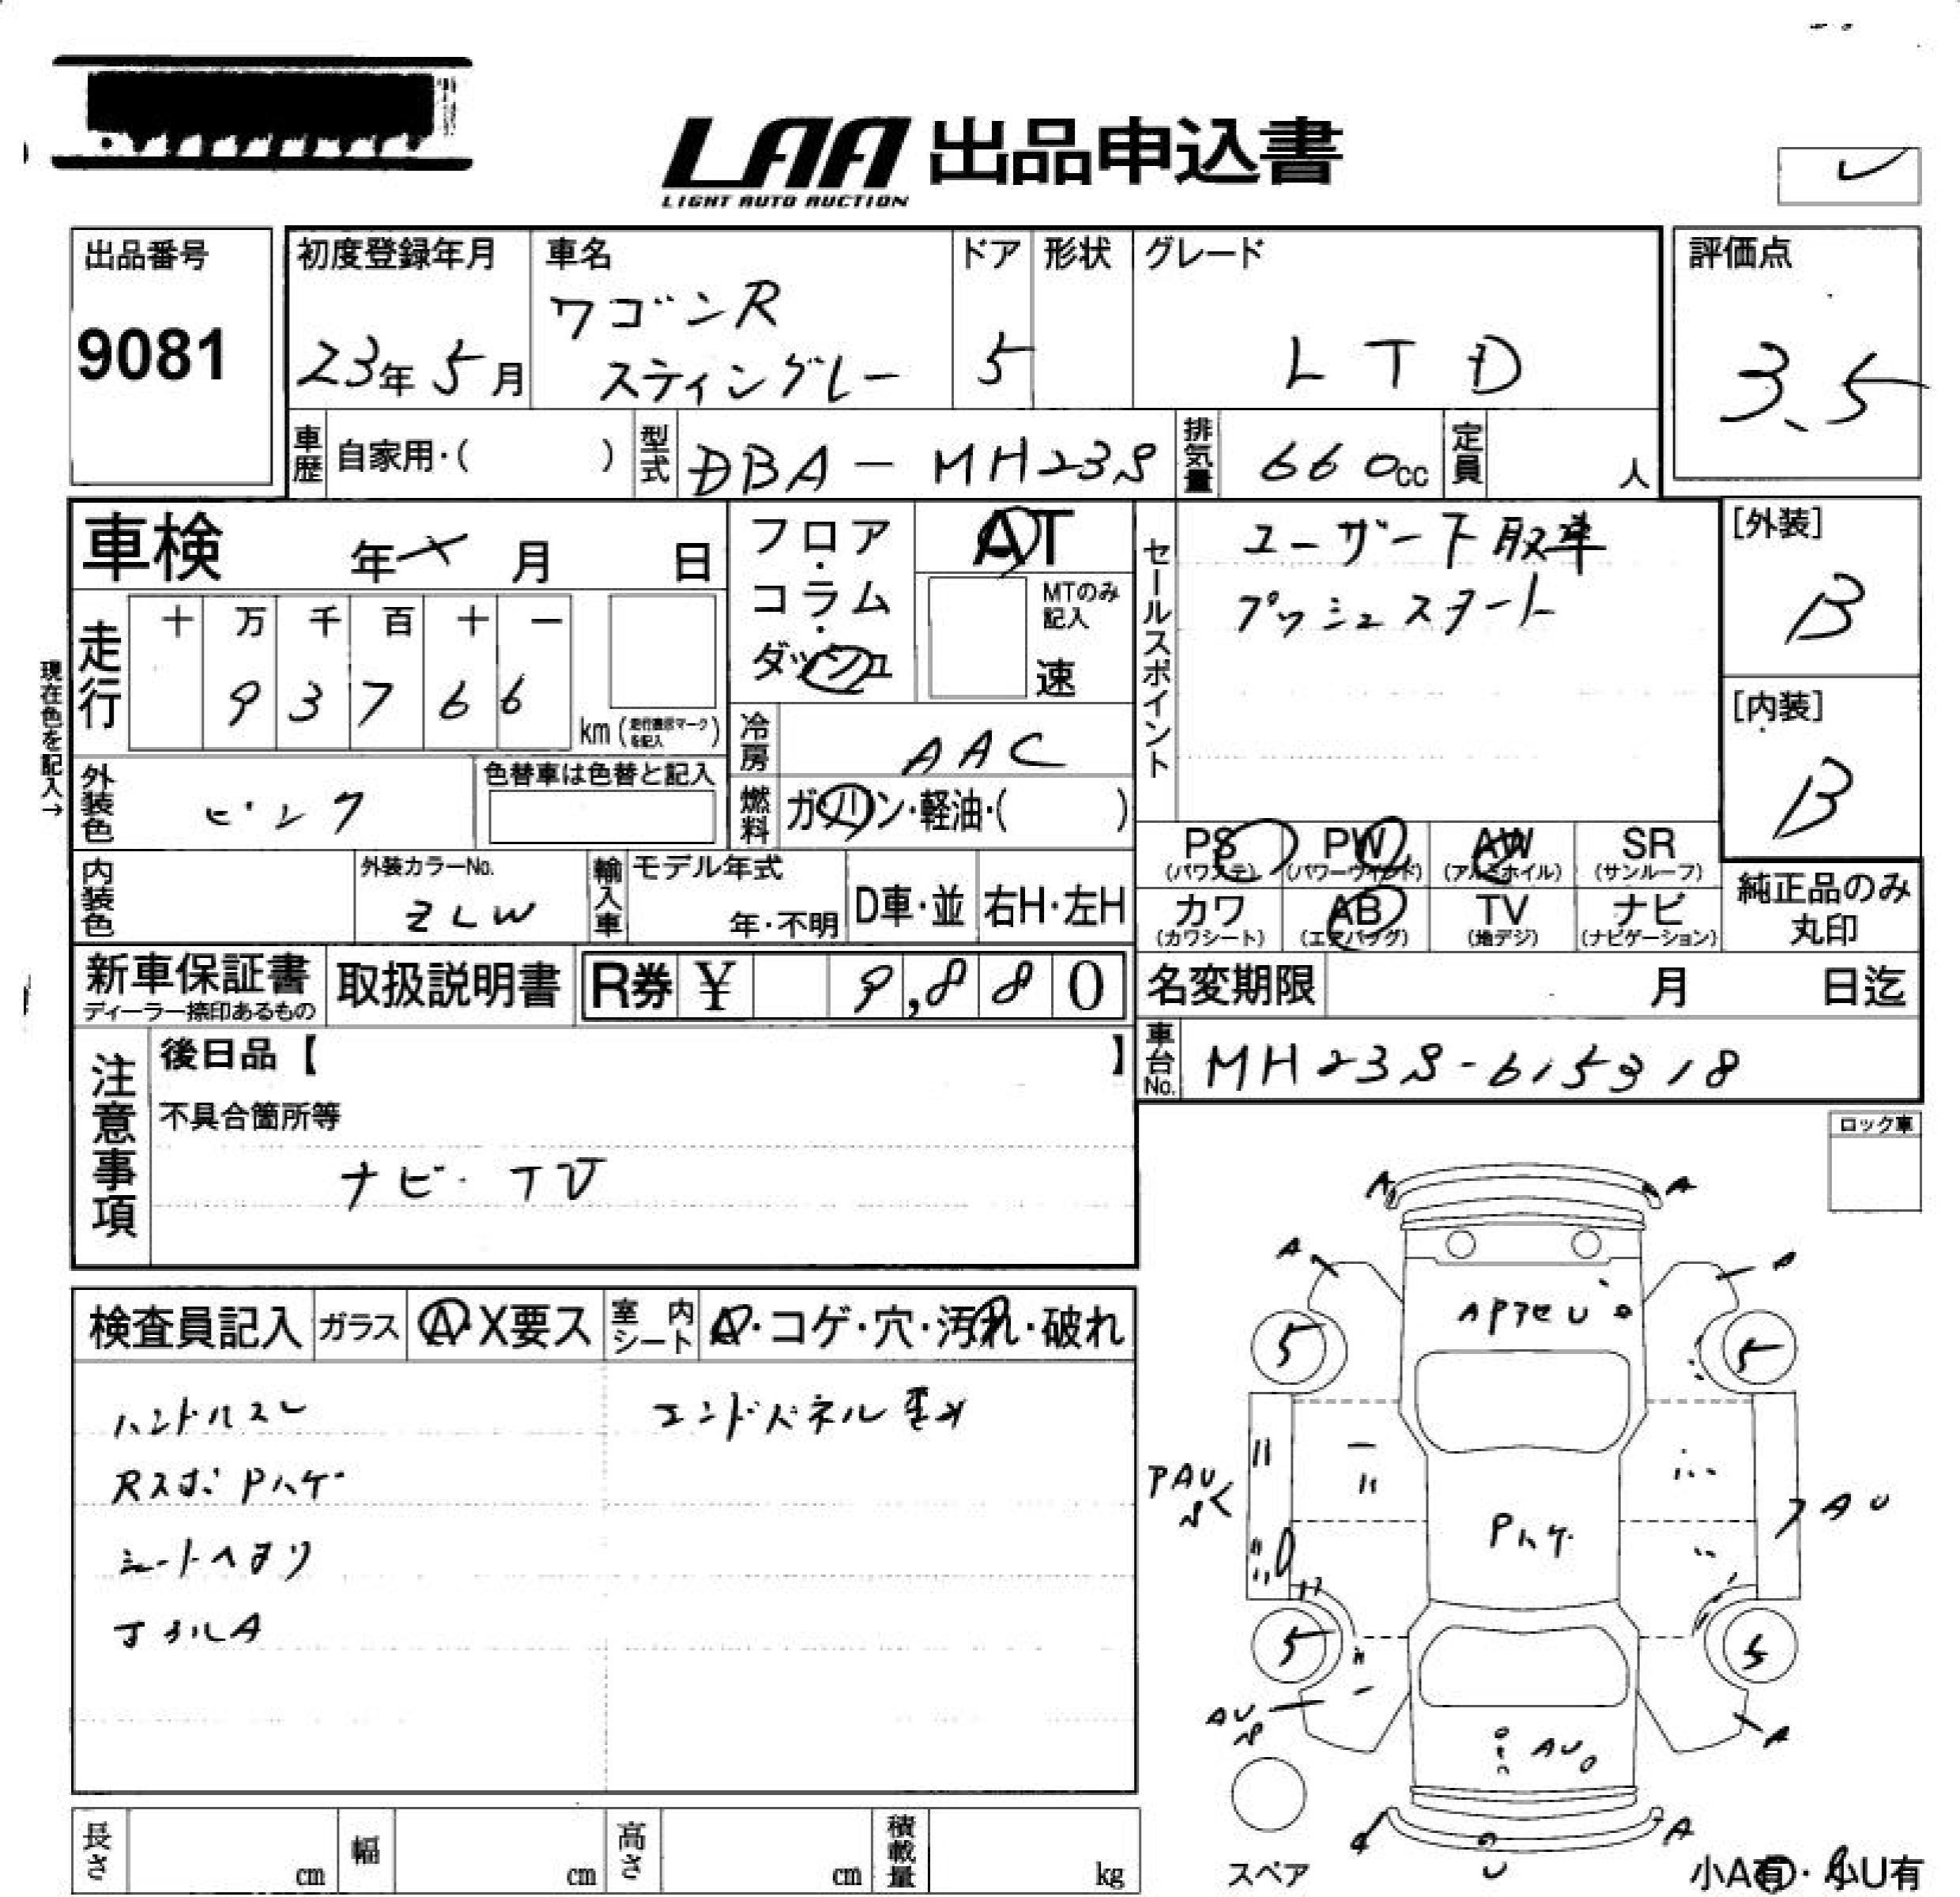 LAA 出品申込書
LIGHT AUTO AUCTION
出品番号
9081
初度登録年月
23年 5月
車名
ワゴンR
スティングレー
ドア
5
形状
グレード
LTD
評価点
3.5
車歴
自家用・( )
型式
DBA-MH23S
排気量
660cc
定員
人
車検
年 月 日
フロア・コラム・ダッシュ
AT
MTのみ記入
速
セールスポイント
ユーザー下取車
プッシュスタート
[外装]
B
[内装]
B
現在色を記入→
走行
十 万 千 百 十 一
9 3 7 6 6
km
冷房
AAC
外装色
ピンク
色替車は色替と記入
燃料
ガソリン・軽油・( )
PS
(パワステ)
PW
(パワーウインド)
AW
(アルミホイル)
SR
(サンルーフ)
内装色
外装カラーNo.
ZLW
輸入車
モデル年式
年・不明
D車・並
右H・左H
カワ
(カワシート)
AB
(エアバッグ)
TV
(地デジ)
ナビ
(ナビゲーション)
純正品のみ
丸印
新車保証書
ディーラー捺印あるもの
取扱説明書
R券 ¥ 9,880
名変期限
月 日迄
車台No.
MH23S-615318
注意事項
後日品【 】
不具合箇所等
ナビ・TV
ロック車
検査員記入
ガラス
A・X要ス
室内シート
A・コゲ・穴・汚れ・破れ
ハンドルスレ
エンドパネル歪み
Rスポ Pハゲ
シートヘタリ
A
A
A
A
5
5
PAU
AU
Pハゲ
5
5
AU
A
AU
A
U
長さ
cm
幅
cm
高さ
cm
積載量
kg
スペア
小A有・小U有